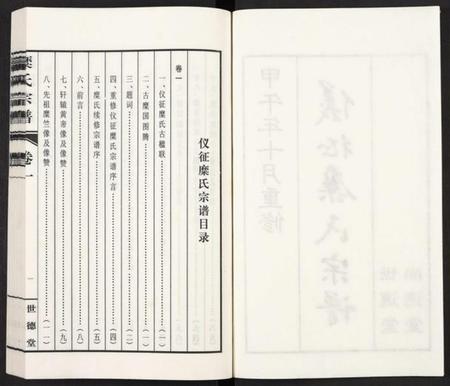 仪征糜氏宗谱目录
卷一
一、仪征糜氏古楹联……(一)
二、古糜国图腾……(一)
三、题词……(二)
四、重修仪征糜氏宗谱序言……(四)
五、糜氏续修宗谱序……(四)
六、前言……(八)
七、轩辕黄帝像及像赞……(九)
八、先祖糜竺像及像赞……(一一)
糜氏宗谱
卷一
一
世德堂
甲午年十月重修